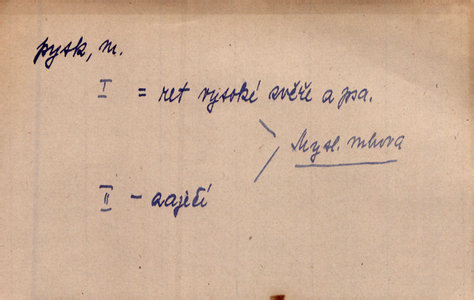 pysk, m.
I = ret vysoké zvěře a psa.
Mysl. mluva
II - zaječí